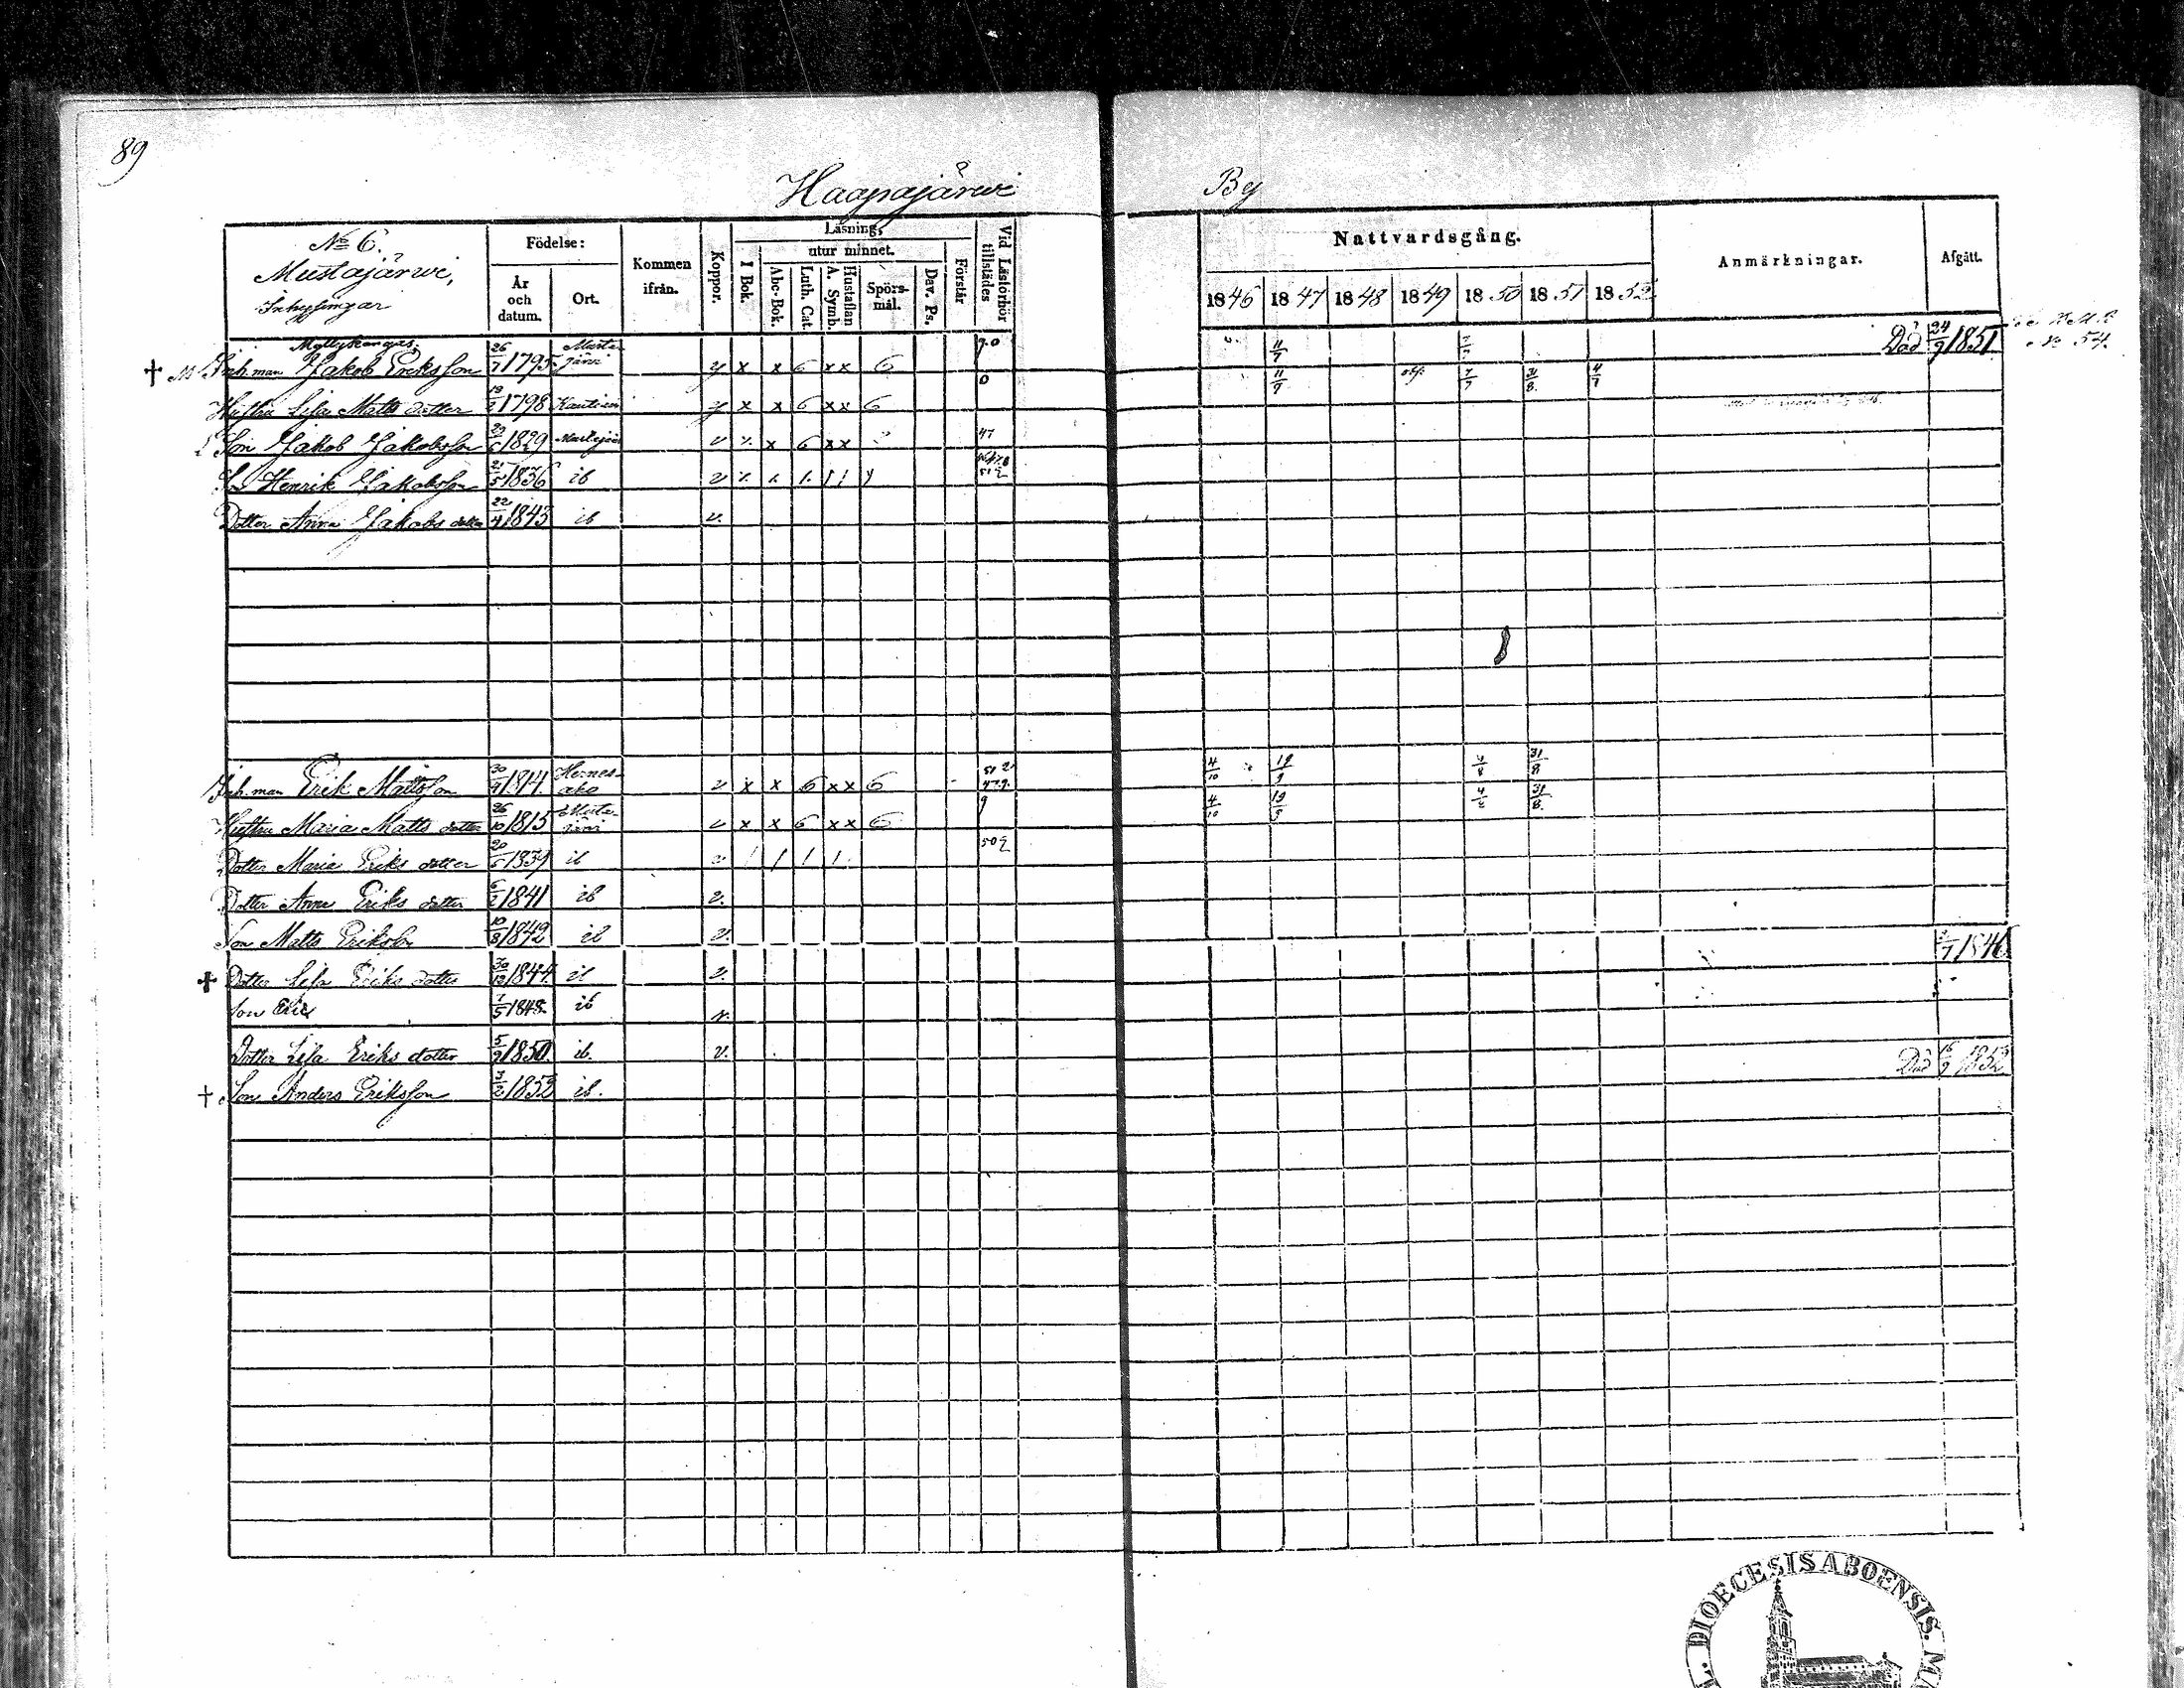 89
Haapajärwi By
No 6.
Mustajärwi,
Inhysingar
Födelse:
År och datum.
Ort.
Kommen ifrån.
Koppor.
Läsning,
I Bok.
utur minnet.
Abc-Bok.
Luth. Cat.
Hustaflan A. Symb.
Spörs-mål.
Dav. Ps.
Förstår
Vid Läsförhör tillstädes
Nattvardsgång.
1846 1847 1848 1849 1850 1851 1852
Anmärkningar.
Afgått.
Myllykangas
† Inh.man Jakob Eriksson 26/7 1795 Musta-järvi y x x 6 x x 6 9.0 11/7 Död 24/9 1851 No 54.
Hustru Lisa Matts dotter 1798 y x x 6 x x 6 0 11/9 7/7 31/8 4/7
Son Jakob Jakobsson 29/6 1829 v x 6 x x 47
Son Henrik Jakobsson 25/5 1836 ib v
Dotter Anna Jakobs dotter 22/4 1843 ib v.
Inh.man Erik Mattsson 1814 Hernes-aho v x x 6 x x 6 4/10 19/9 4/8 31/8
Hustru Maria Matts dotter 26/10 1815 Musta-järvi v x x 6 x x 6 9 4/10 19/9 31/8
Dotter Maria Eriks dotter 20/5 1839 ib v / / / / 50
Dotter Anna Eriks dotter 6/2 1841 ib v.
Son Matts Eriksson 10/8 1842 ib v.
† Dotter Lisa Eriks dotter 30/12 1844 ib v. 1846
Son Eric 7/5 1848 ib v.
Dotter Lisa Eriks dotter 5/9 1850. ib. v.
† Son Anders Eriksson 3/2 1852 ib. Död 16/9 1852
DIOECESIS ABOENSIS.